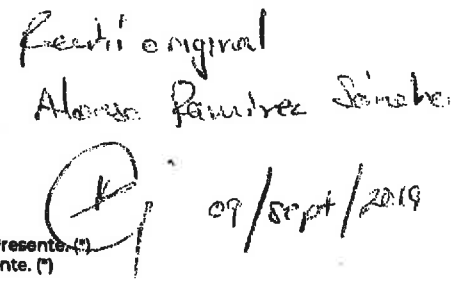 Recibí original
Alonso Ramirez Sánchez
09/sept/2019
resente. (*)
nte. (*)